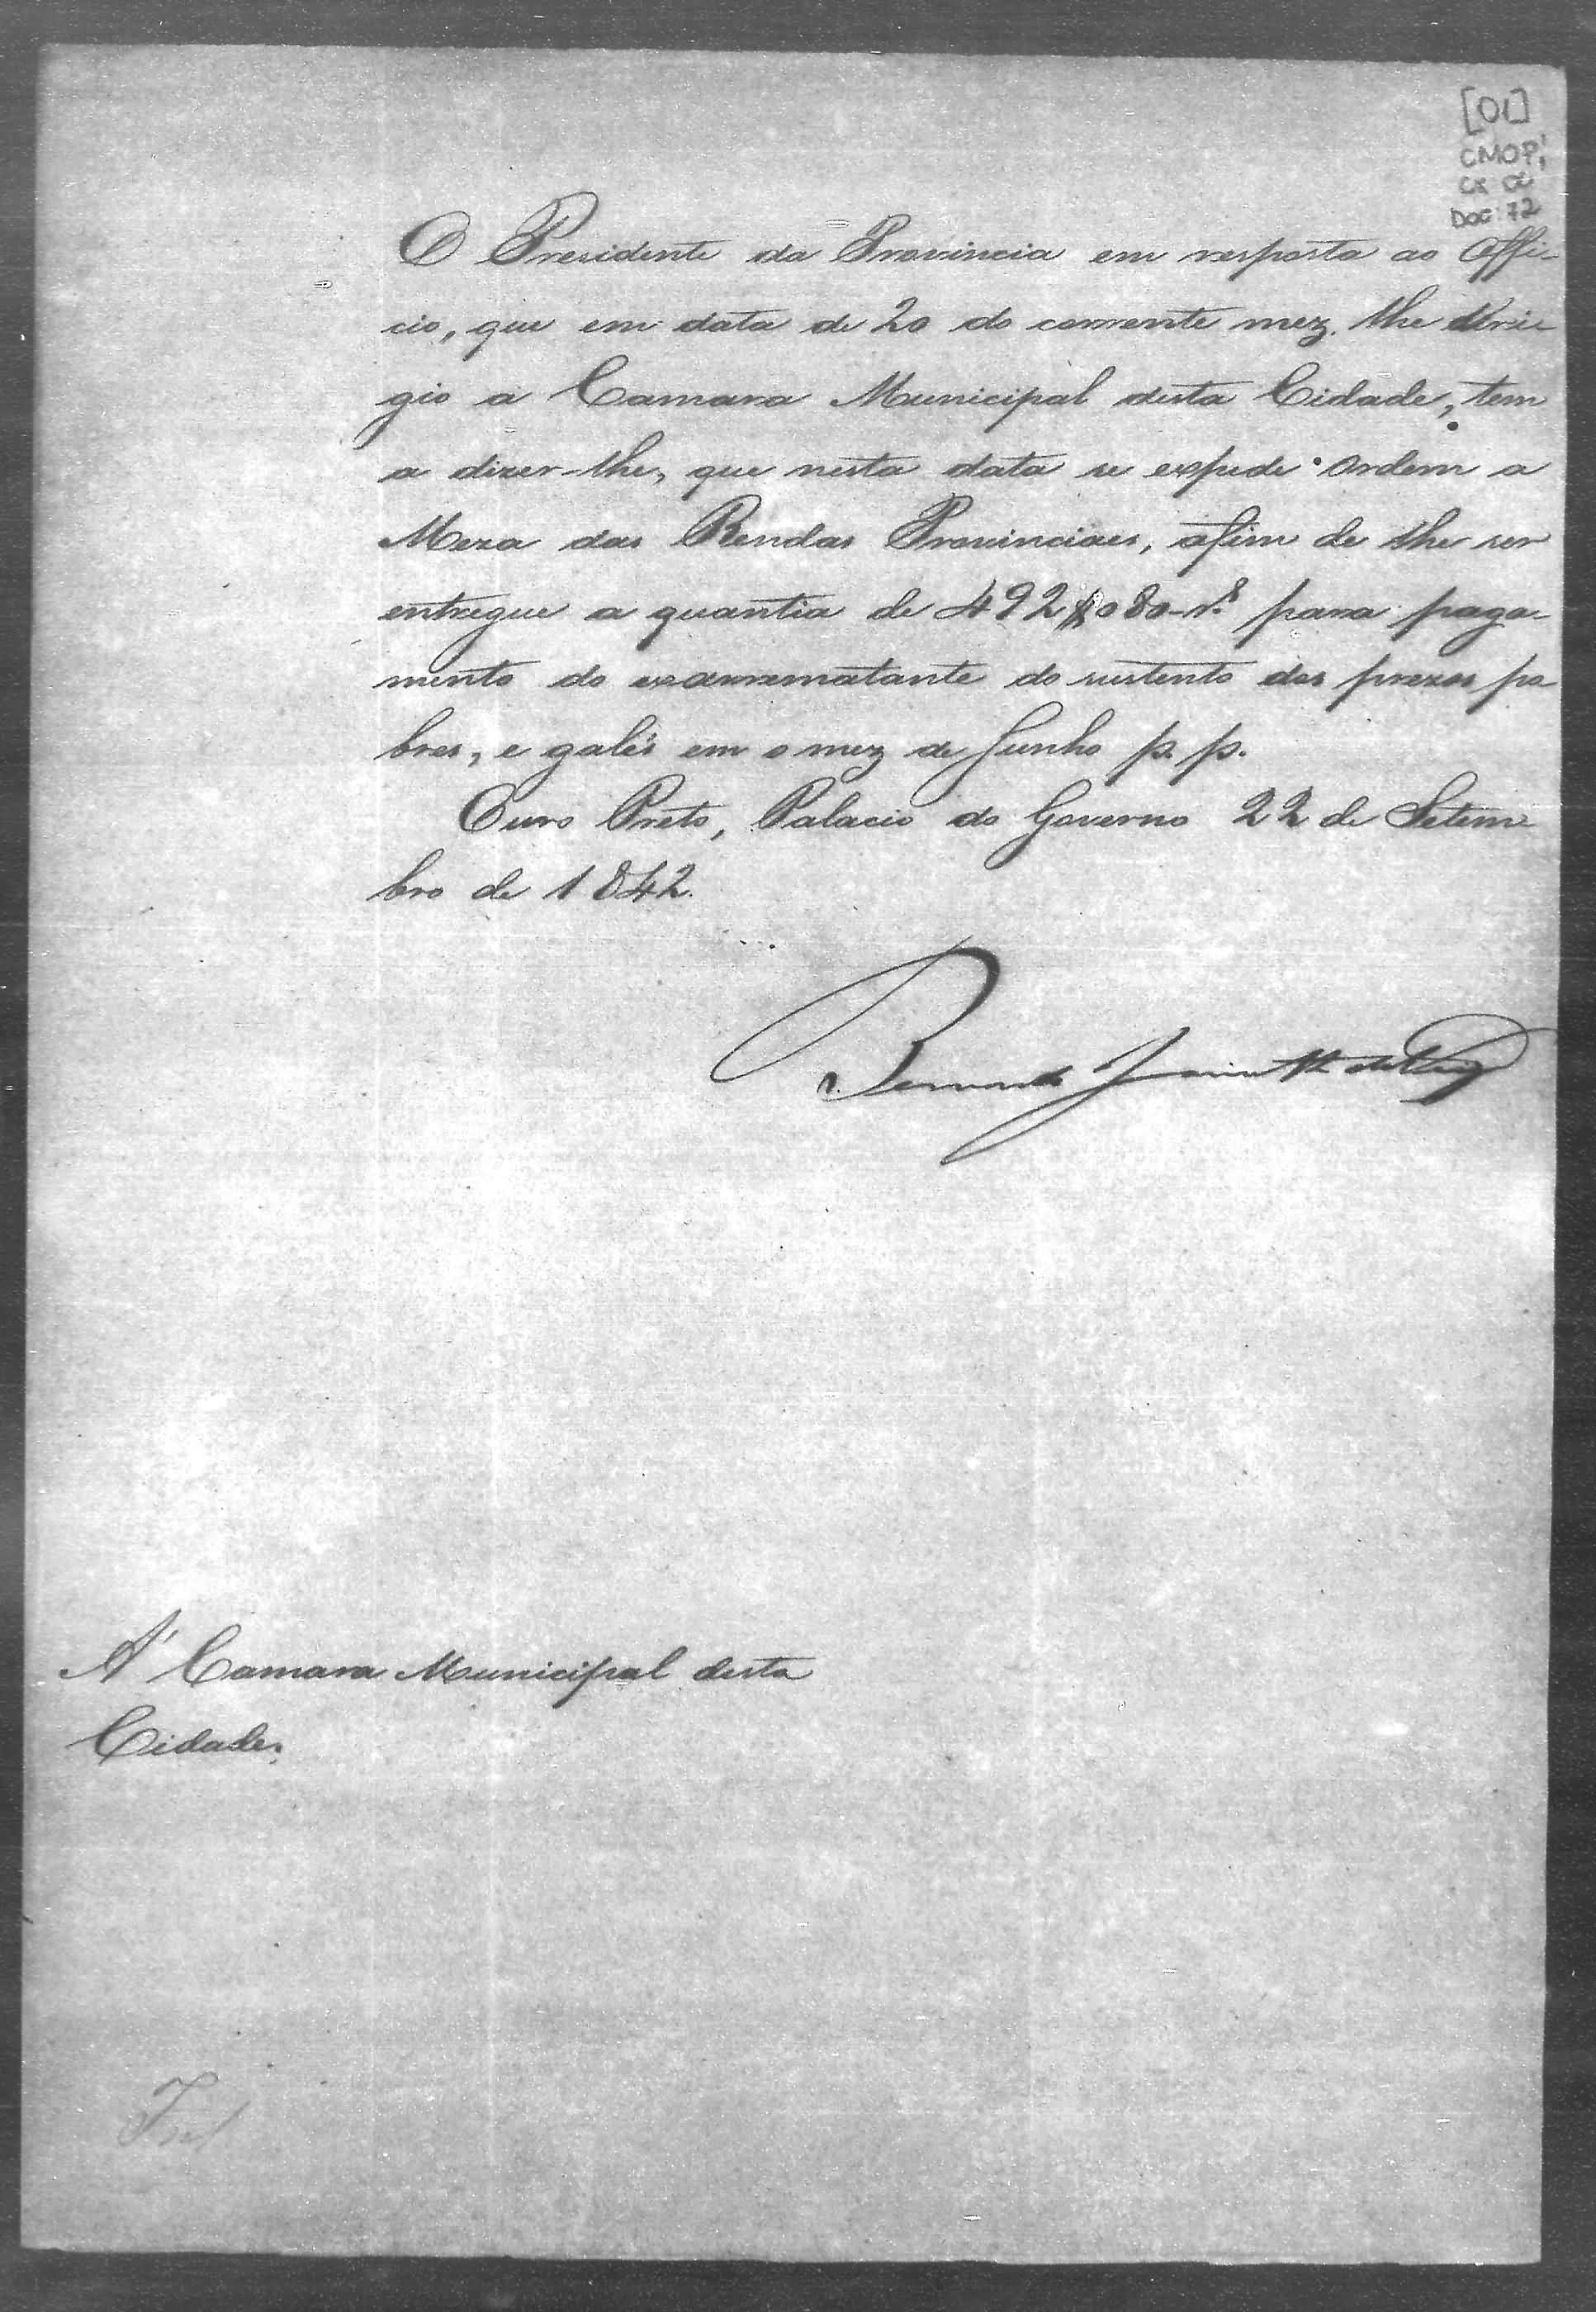 [01]
CMOP,
Cx 02
Doc: 72
O Presidente da Provincia em resposta ao Offi-
cio, que em data de 20 do corrente mez lhe diri-
gio a Camara Municipal desta Cidade, tem
a dizer-lhe, que nesta data se expede ordem a
Meza das Rendas Provinciaes, afim de lhe ser
entregue a quantia de 492$080 rs. para paga-
mento do exarrematante do sustento dos prezos po-
bres, e galés em o mez de Junho p. p.
Ouro Preto, Palacio do Governo 22 de Setem-
bro de 1842.
Bernardo Jacintho da Veiga
A' Camara Municipal desta
Cidade.